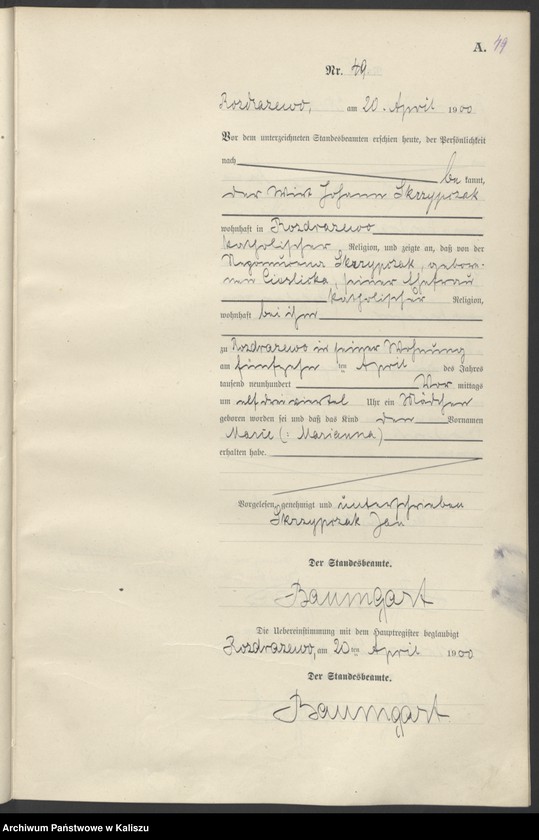 A. 49
Nr. 49.
Rozdrazewo, am 20. April 1900
Vor dem unterzeichneten Standesbeamten erschien heute, der Persönlichkeit
nach be kannt,
der Wirt Johann Skrzypczak
wohnhaft in Rozdrazewo
katholischer Religion, und zeigte an, daß von der
Nepomucena Skrzypczak, gebore-
nen Cieslicka, seiner Ehefrau
katholischer Religion,
wohnhaft bei ihm
zu Rozdrazewo in seiner Wohnung
am fünfzehn ten April des Jahres
tausend neunhundert Vor mittags
um elf dreiviertel Uhr ein Mädchen
geboren worden sei und daß das Kind den Vornamen
Marie (: Marianna)
erhalten habe.
Vorgelesen, genehmigt und unterschrieben
Skrzypczak Jan
Der Standesbeamte.
Baumgart
Die Uebereinstimmung mit dem Hauptregister beglaubigt
Rozdrazewo, am 20 ten April 1900
Der Standesbeamte.
Baumgart
Archiwum Państwowe w Kaliszu